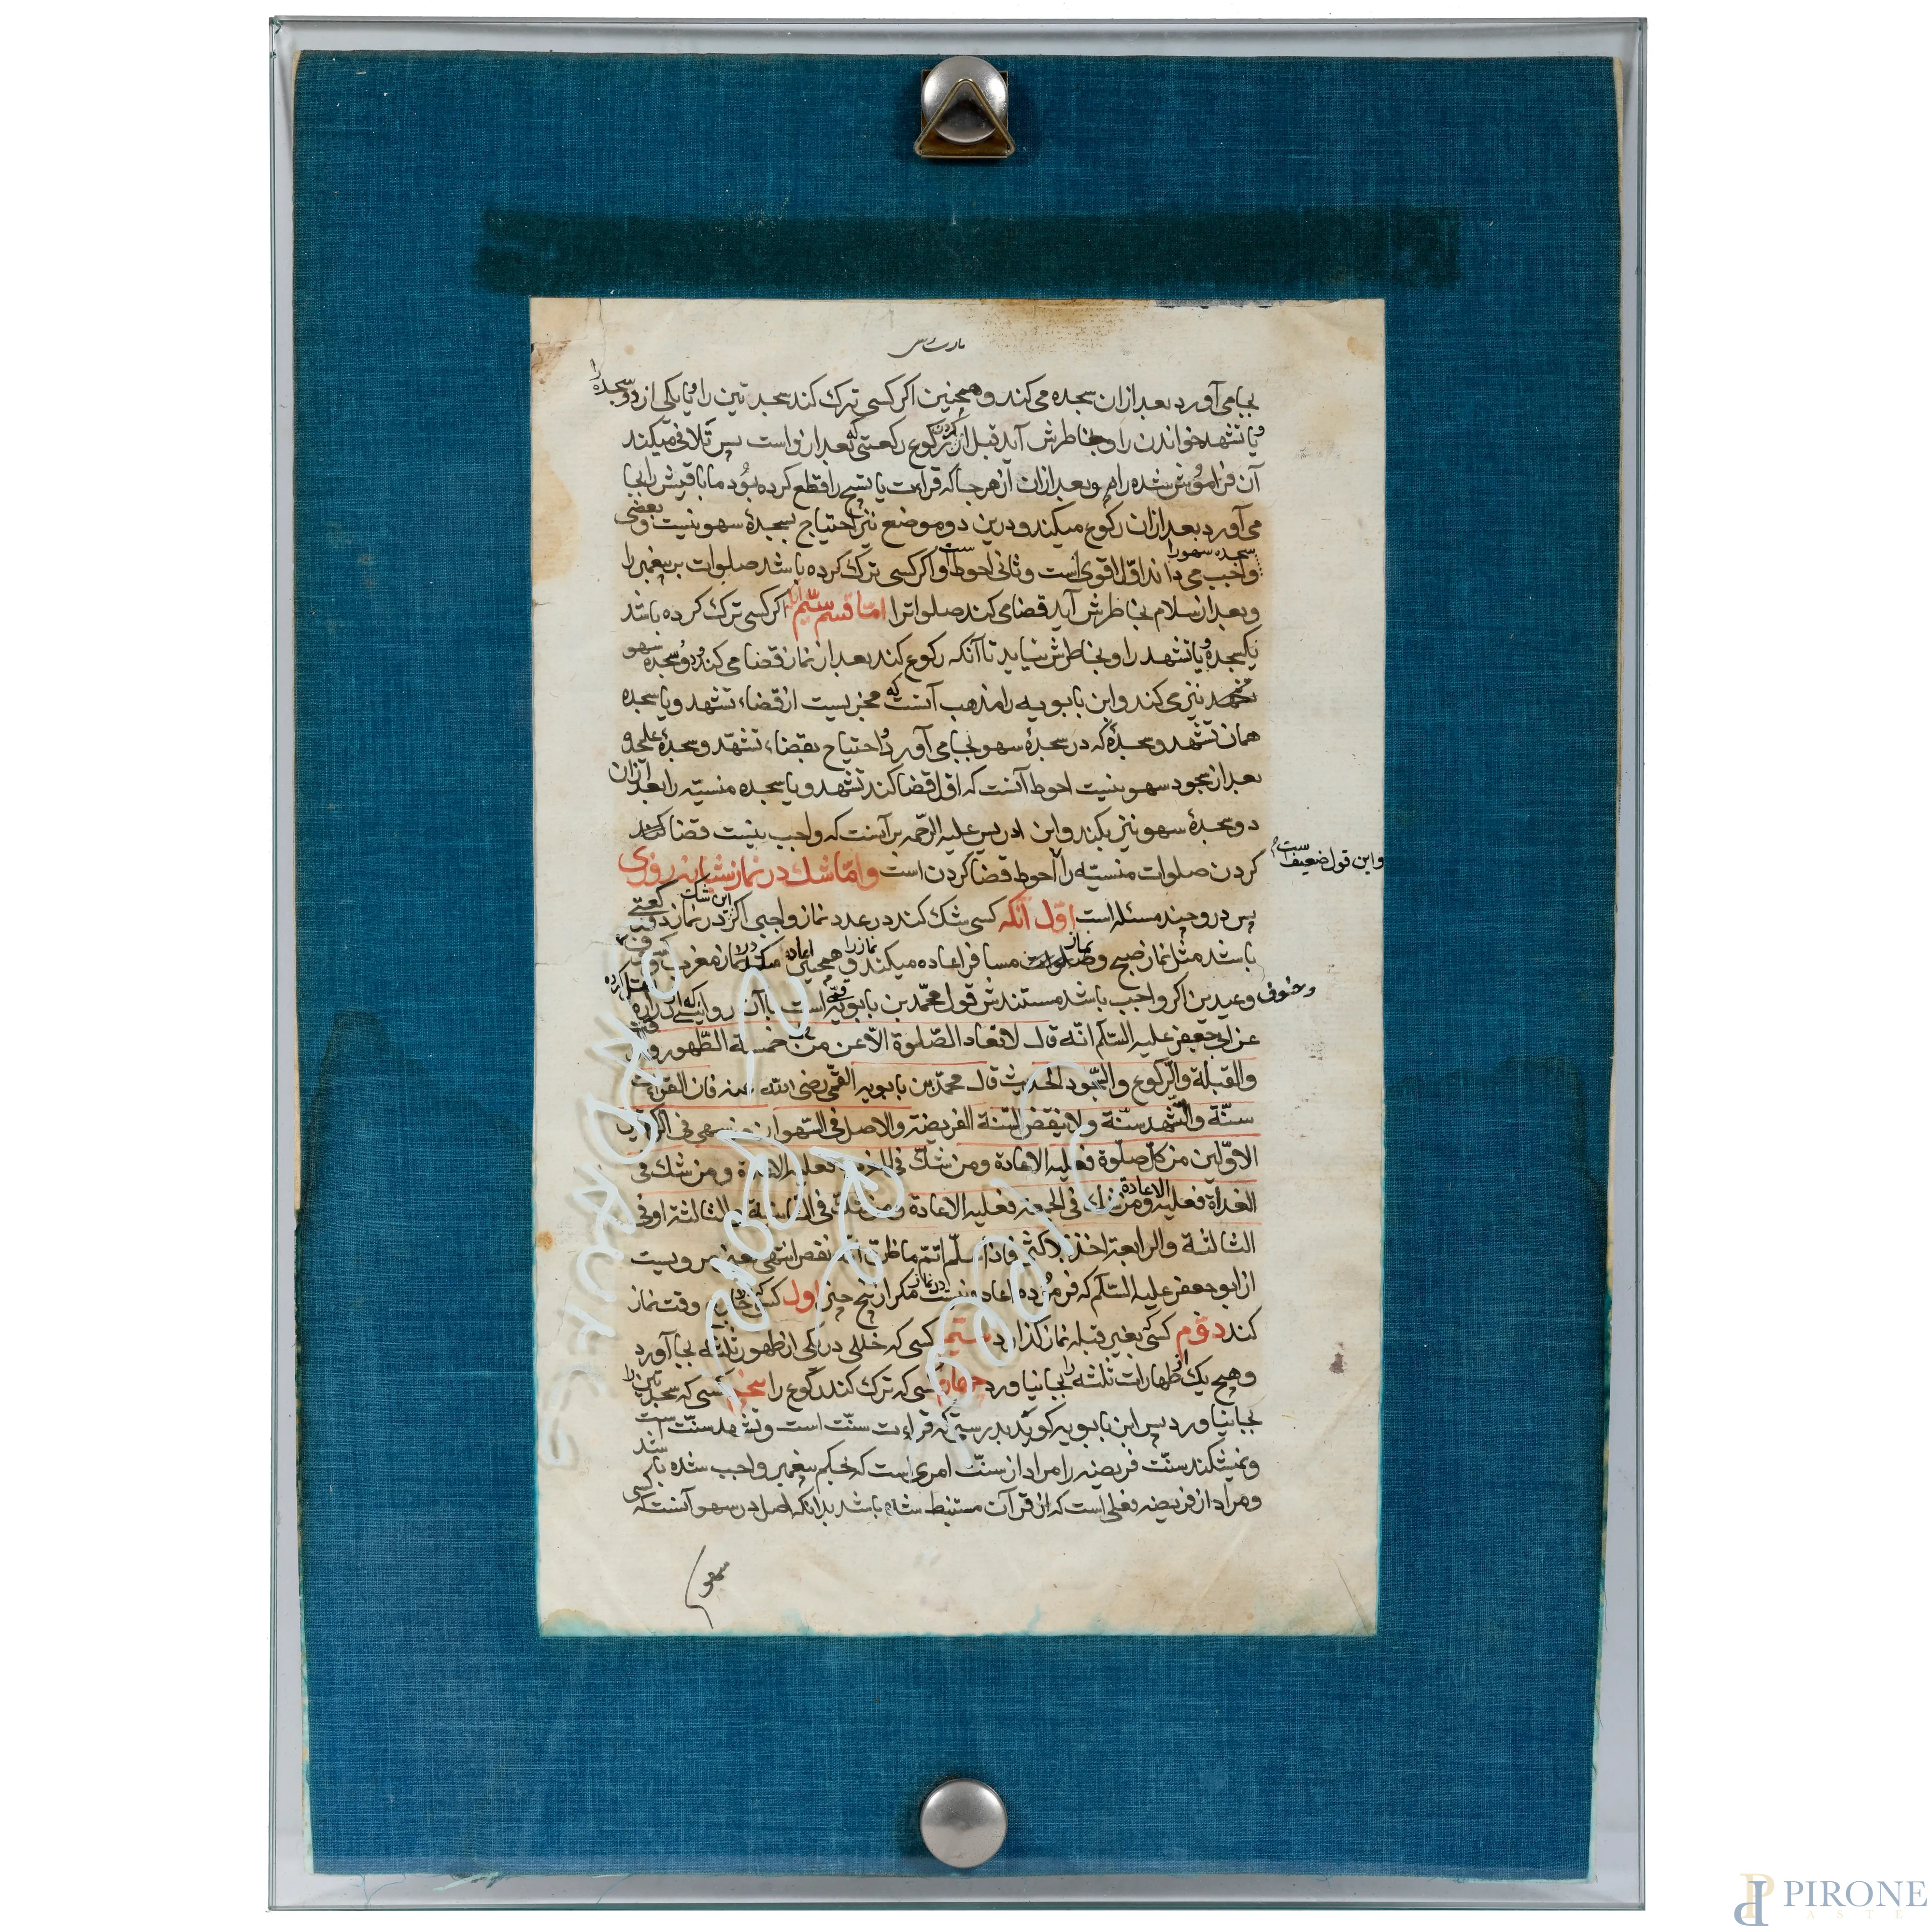 بجا می آورد بعد ازان سجده می کند و همچنین اکر کسی ترک کند سجدتین را و یا یکی از دو سجده را
و یا تشهد خواندن را و بخاطرش آید قبل از کردن رکوع رکعتی که بعد ازو است پس تلافی میکند
آن فراموش شده را و بعد ازان از هر جا که قراءت یا تسبیح را قطع کرده بود ما باقیش را بجا
می آورد بعد ازان رکوع میکند و درین دو موضع نیز احتیاج بسجدهٔ سهو نیست و بعضی
سجده سهو را
واجب می دانند اوّل اقوی است و ثانی احوط است و اکر کسی ترک کرده باشد صلوات بر پیغمبر را
و بعد از سلام بخاطرش آید قضا می کند صلوات را امّا قسم سیّم اکر کسی ترک کرده باشد
یک سجده و یا تشهد را و بخاطرش نیاید تا آنکه رکوع کند بعد از نماز قضا می کند و دو سجده سهو
نیز می کند و ابن بابویه را مذهب آنست که مجزیست از قضاء تشهد و یا سجده
همان تشهد و سجدهٔ که در سجدهٔ سهو بجا می آورد و احتیاج بقضاء تشهّد و سجدهٔ علیحده
بعد از سجود سهو نیست احوط آنست که اوّل قضا کند تشهد و یا سجده منسیّه را بعد ازان
دو سجدهٔ سهو نیز بکند و ابن ادریس علیه الرّحمه بر آنست که واجب نیست قضا
کردن صلوات منسیّه را احوط قضا کردن است و امّا شک در نماز شبانه روزی
و این قول ضعیف است
پس درو چند مسئله است اوّل آنکه کسی شک کند در عدد نماز واجبی اکر این شک در نماز دو رکعتی
باشد مثل نماز صبح و نماز مسافر اعاده میکند نماز را و همچنین در نماز مغرب
و خوف و عیدین اکر واجب باشد مستندش قول محمّد بن بابویه است با آن روایتی که از زراره
عن ابی جعفر علیه السّلم انّه قال لا تعاد الصّلوة الّا عن خمسة الطّهور و الوقت
والقبلة والرّکوع والسّجود الحدیث قال محمّد بن بابویه القمّی رضی الله عنه فان القراءة
سنّة والتّشهد سنّة ولا ینقض السّنة الفریضة والاصل فی السّهو ان من سهی فی الرکعتین
الاوّلین من کلّ صلوة فعلیه الاعادة ومن شکّ فی المغرب فعلیه الاعادة ومن شک فی
الغداة فعلیه الاعادة ومن شک فی الجمعة فعلیه الاعادة ومن شک فی الثانیة والثالثة او فی
الثالثة والرابعة اخذ بالاکثر فاذا سلّم اتمّ ما ظنّ انّه نقص انتهی یعنی مرویست
از ابو جعفر علیه السّلم که فرمود اعاده نیست در نماز مکر از پنج چیز اول کسی که خارج وقت نماز
کند دوّم کسی که بغیر قبله نماز کذارد سیّم کسی که خللی در یکی از طهور ثلثه بجا آورد
و هیچ یک از طهارات ثلثه را بجا نیاورد چهارم کسی که ترک کند رکوع را پنجم کسی که سجدتین را
بجا نیاورد پس ابن بابویه کوید بدرستیکه قراءت سنّت است و تشهد سنّت است
و نمیشکند سنّت فریضه را مراد از سنّت امری است که بحکم پیغمبر واجب شده باشد
و مراد از فریضه فعلی است که از قرآن مستنبط شده باشد بدانکه اصل در سهو آنست که کسی
سهو
PIRONE
ASTE